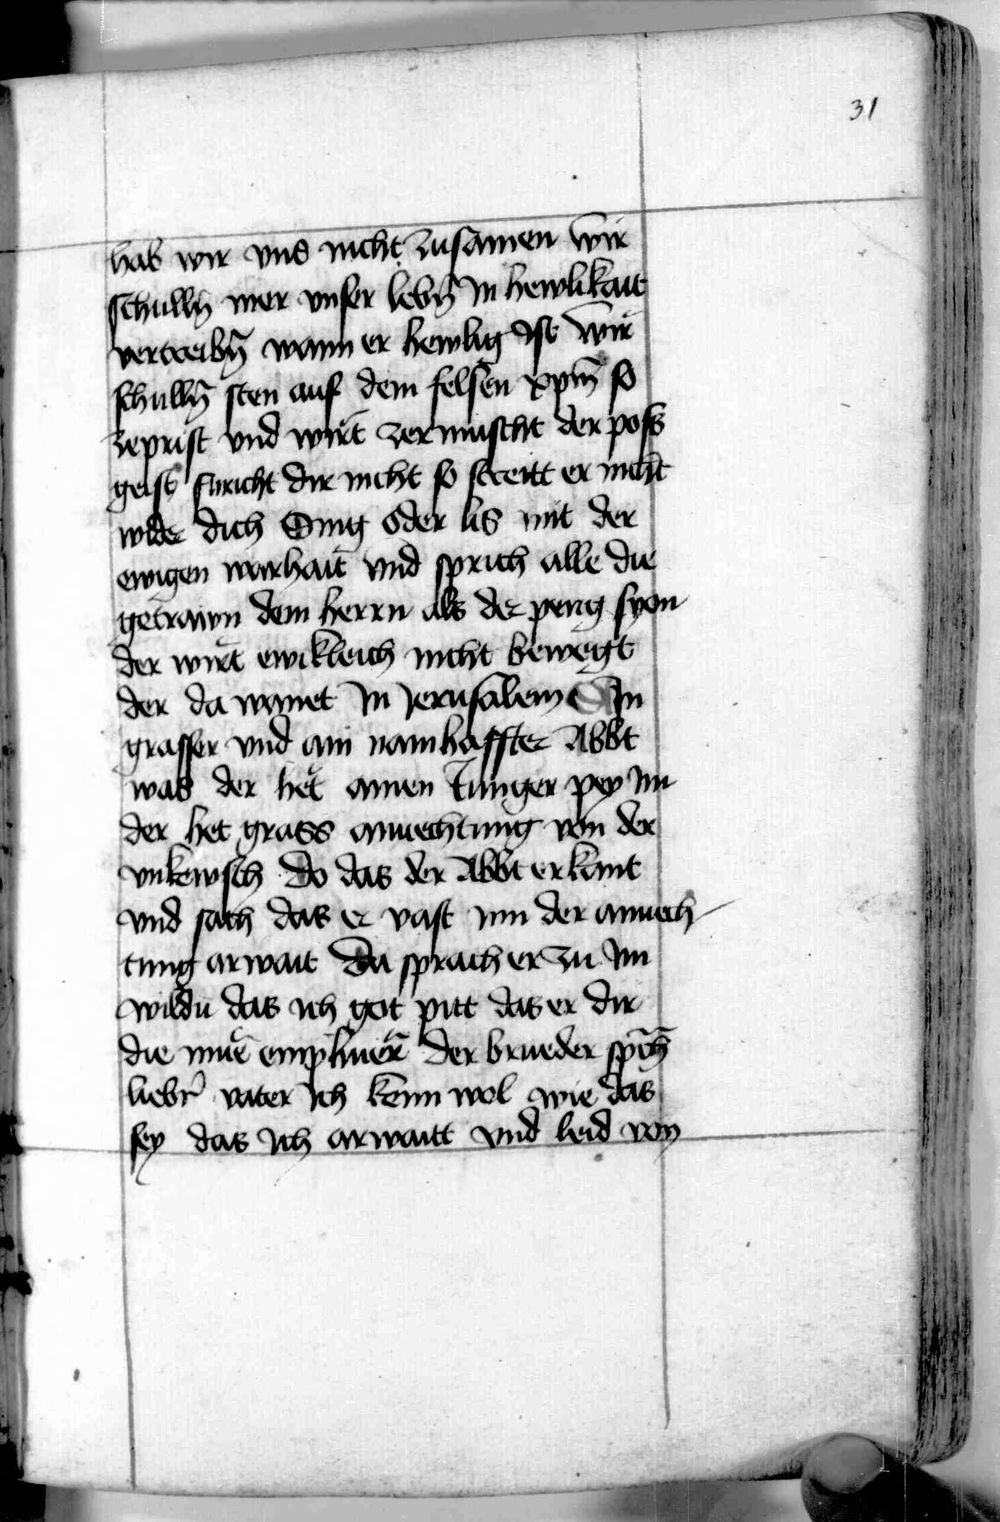 31
hab wir vns nicht zusamen wir
schulln̄ mer vnser lebn̄ in hewlikait
vertreibn̄ wann er hewlig ist wir
schulln̄ sten auf dem felsen xp̄m so
zeprist vnd wirt zermuscht der poss
geist furicht dir nicht so streitt er nicht
wider dich Sing oder lis mit der
ewigen warhait vnd sprich alle die
getrawn dem herrn als der perig syon
der wirt ewikleich nicht bewegt
der da wonet in Jerusalem Ain
grasser vnd ain namhaffter Abbt
was der het ainen Junger pey im
der het grass anuechtung von der
vnkewsch Do das der Abbt erkant
vnd sach das er vast inn der anuech
tung arwait Da sprach er zu im
wildu das ich got pitt das er dir
die mue emphuer Der brueder sp̄ch
lieber vater Ich kenn wol wie das
sey das ich arwaitt vnd leid von